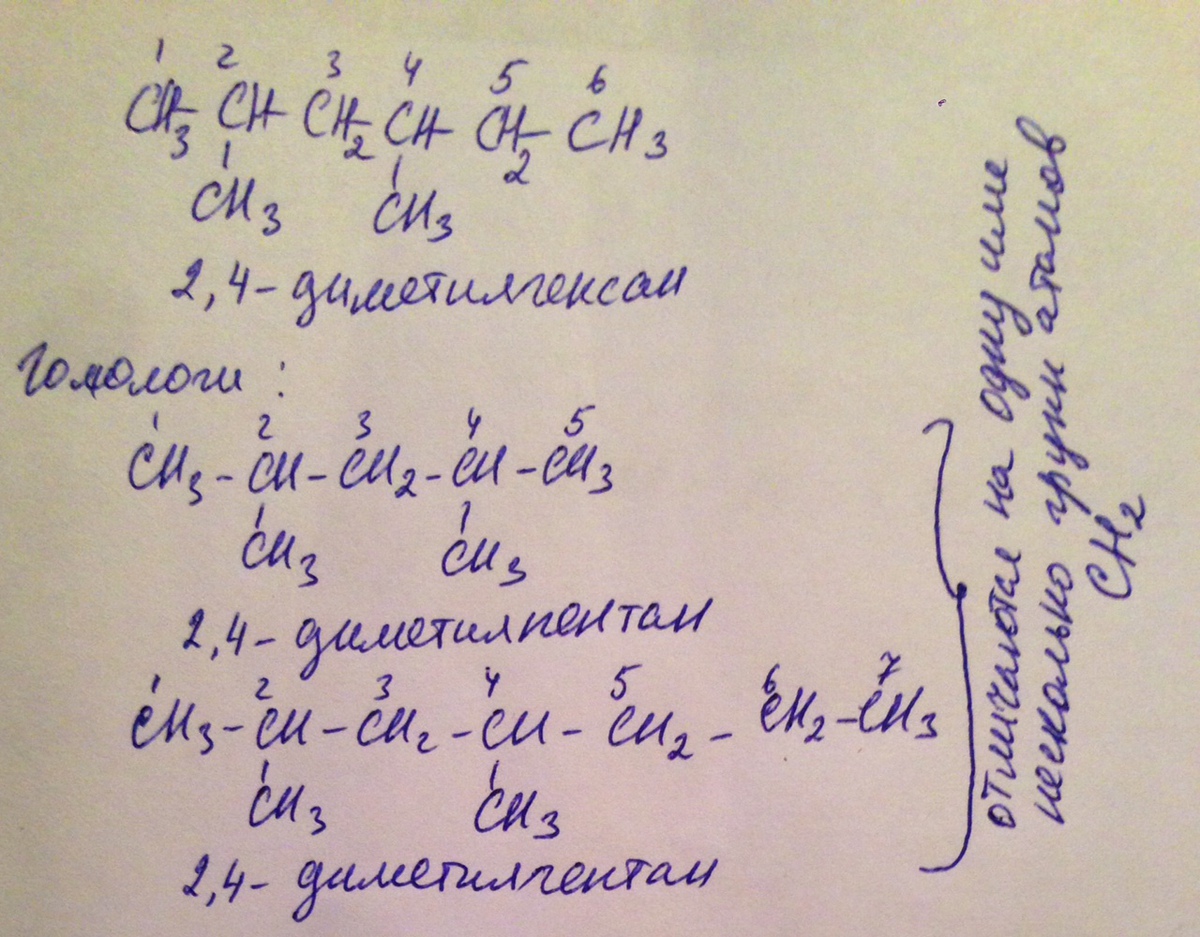 1 2 3 4 5 6
CH3 - CH - CH2 - CH - CH2 - CH3
CH3 CH3
2,4 - диметилгексан
Гомологи :
1 2 3 4 5
CH3 - CH - CH2 - CH - CH3
CH3 CH3
2,4 - диметилпентан
1 2 3 4 5 6 7
CH3 - CH - CH2 - CH - CH2 - CH2 - CH3
CH3 CH3
2,4 - диметилгептан
отличаются на одну или
несколько групп атомов
CH2